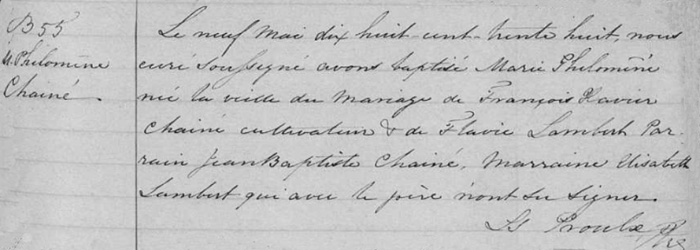 B 55
M. Philomène
Chainé.
Le neuf Mai dix huit-cent-trente huit, nous
curé soussigné avons baptisé Marie Philomène
née la veille du mariage de François Xavier
Chainé cultivateur & de Flavie Lambert Par-
rain Jean Baptiste Chainé, Marraine Elisabeth
Lambert qui avec le père n'ont su signer.
Ls Proulx, Ptre